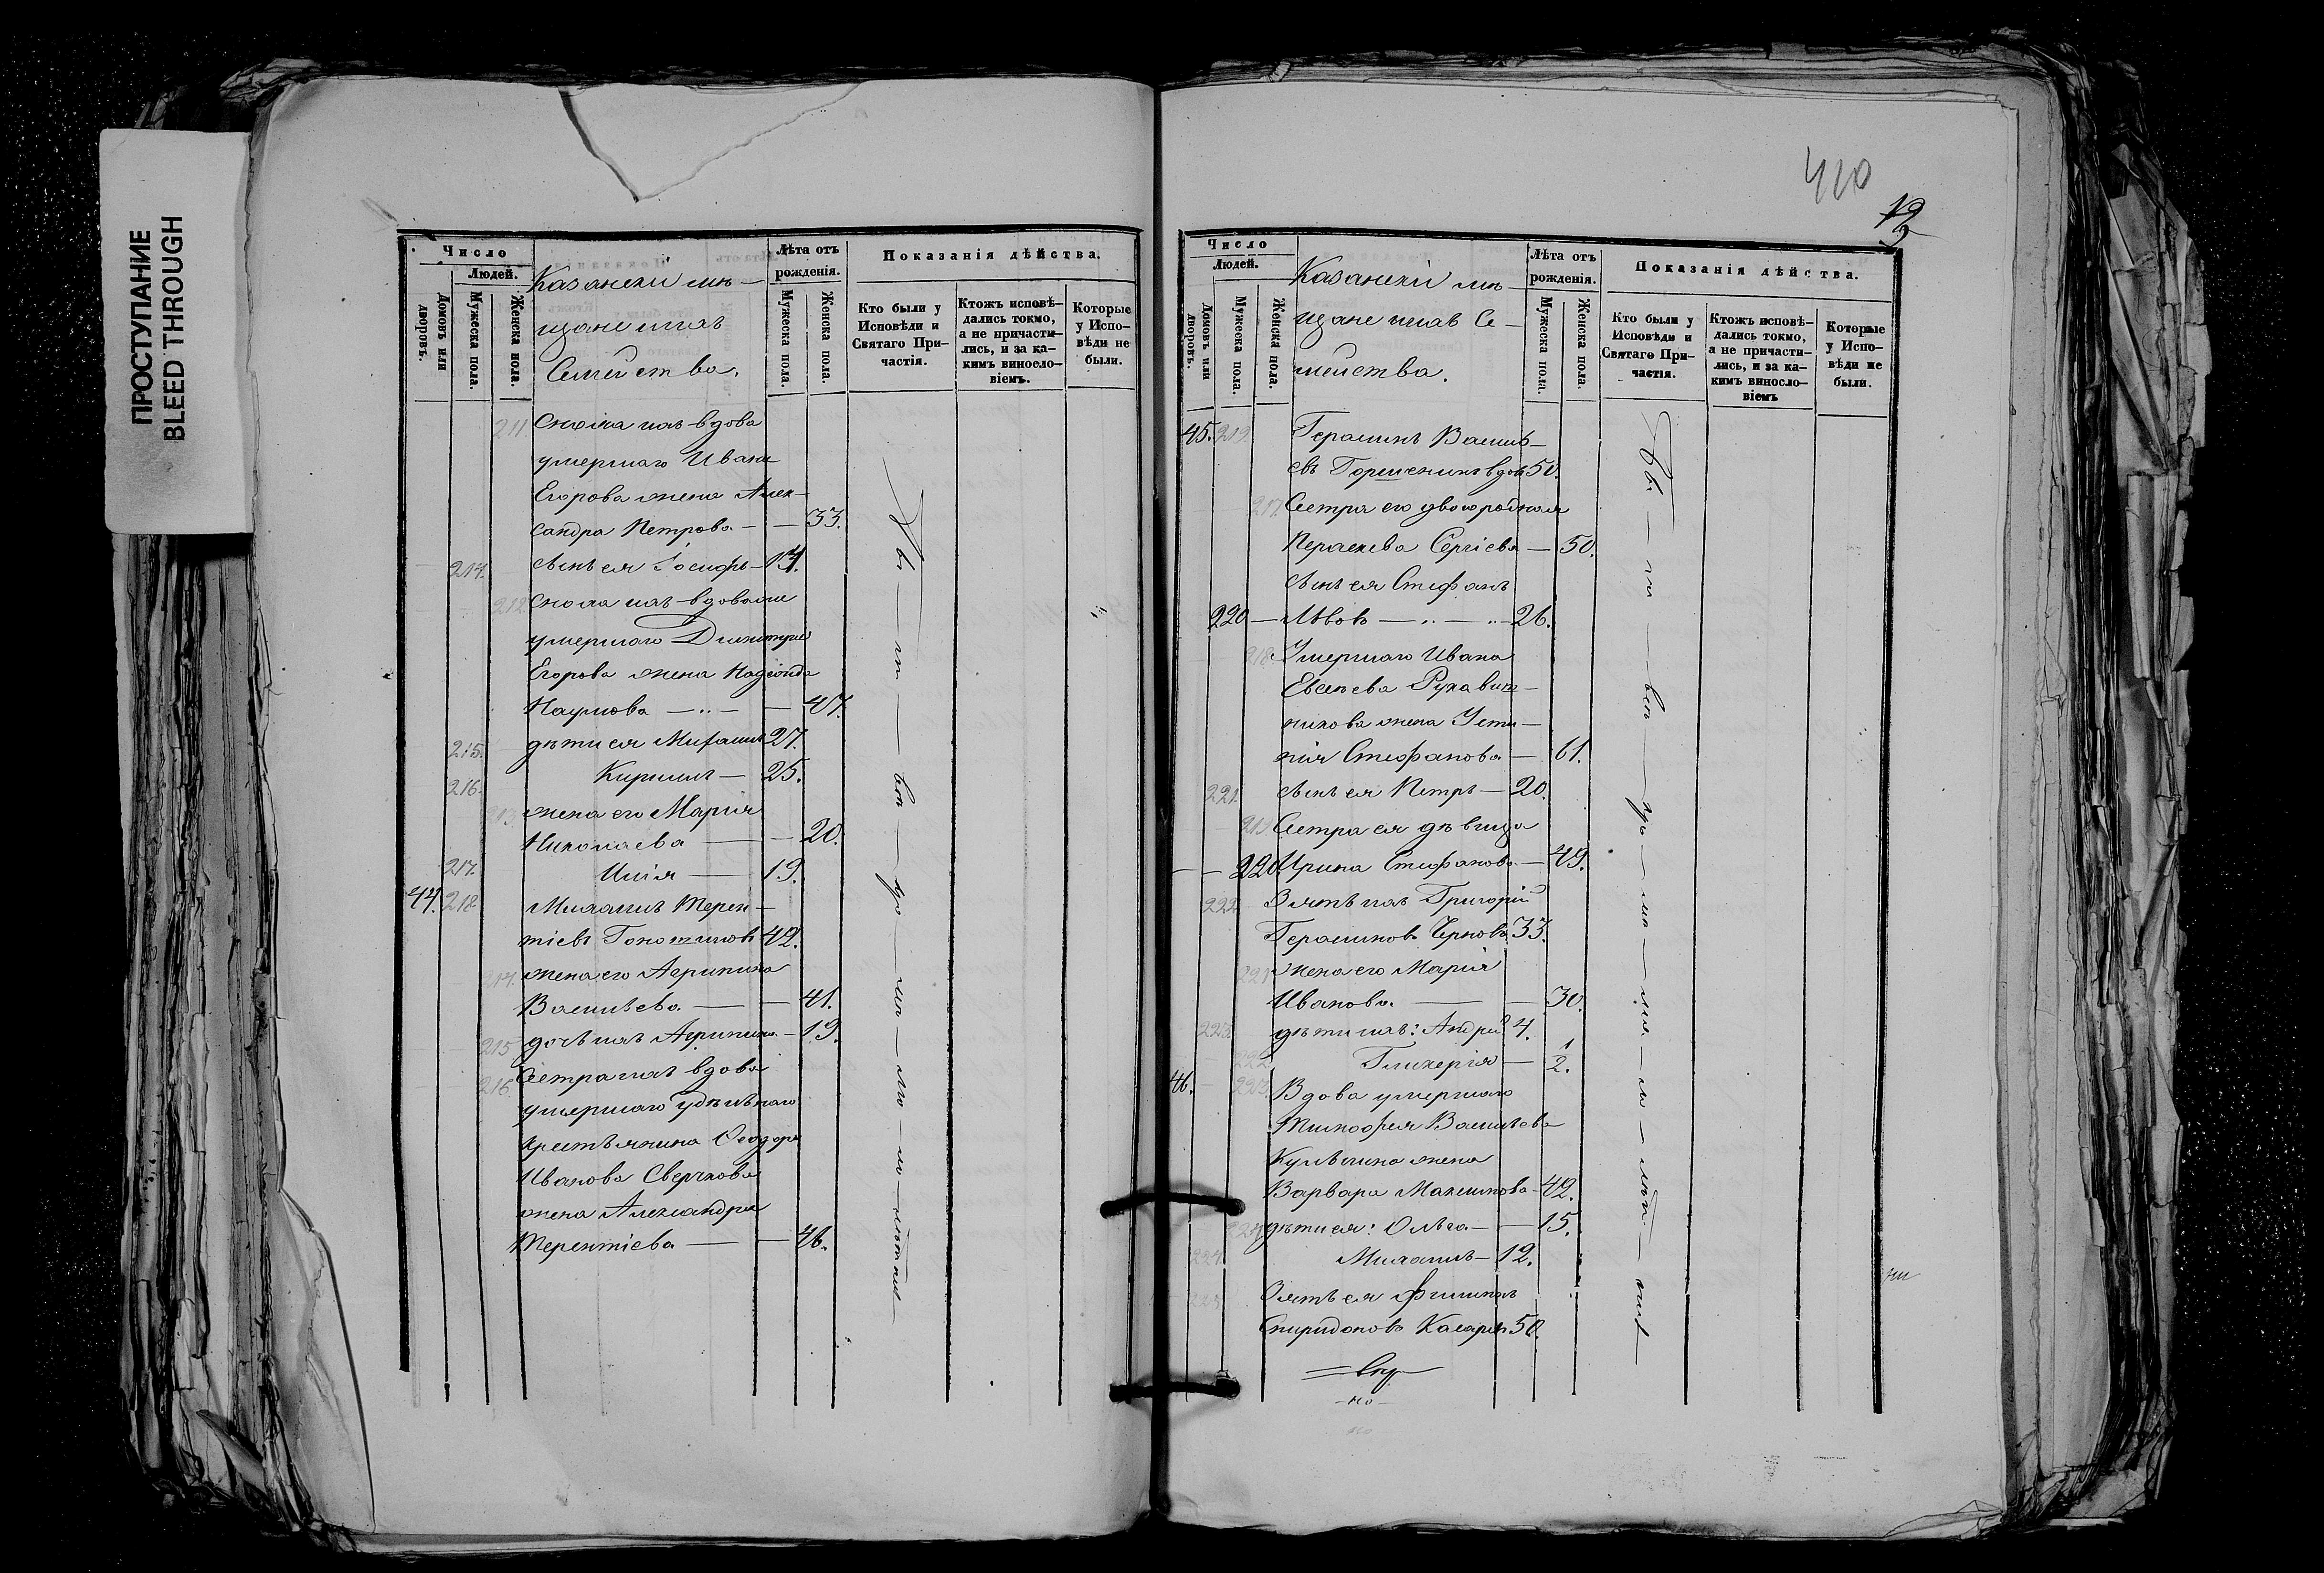 ПРОСТУПАНИЕ
BLEED THROUGH
Число
Людей.
Домовъ или дворовъ.
Мужеска пола.
Женска пола.
Казанскіи мѣ-
щане и ихъ
Семейства.
Лѣта отъ рожденія.
Мужеска пола.
Женска пола.
Показанія дѣйства.
Кто были у Исповѣди и Святаго Причастія.
Ктожъ исповѣдались токмо, а не причастились, и за какимъ винословіемъ.
Которые у Исповѣди не были.
211. Сноха ихъ вдова
умершаго Ивана
Егорова жена Алек-
сандра Петрова — — 33.
214. сынъ ея Іосифъ — 14.
212 Сноха ихъ вдова
умершаго Димитрія
Егорова жена
Наумова — — 47.
215. дѣти ея 27.
216. Кириллъ — 25.
213. жена его Марія
Николаева — — 20.
217. Илія — 19.
44. 218 Михаилъ Терен-
тіевъ 42.
214. жена его Агрипина
Васильева — — 41.
215 дочь ихъ Агрипина — 19.
216. Сестра ихъ вдова
умершаго удѣльнаго
крестьянина Ѳеодора
Иванова Сверчкова
жена Александра
Терентіева — — 46.
410
Число
Людей.
Домовъ или дворовъ.
Мужеска пола.
Женска пола.
Казанскіи мѣ-
щане и ихъ Се-
мейства.
Лѣта отъ рожденія.
Мужеска пола.
Женска пола.
Показанія дѣйства.
Кто были у Исповѣди и Святаго Причастія.
Ктожъ исповѣдались токмо, а не причастились, и за какимъ винословіемъ
Которые у Исповѣди не были.
45. 219. Герасимъ Василь-
евъ вдов 50.
217. Сестра его двоюродная
Параскева Сергіева — 50.
сынъ ея Стефанъ
220 — Львовъ — 26.
218. Умершаго Ивана
Евсеева Рукавиш-
никова жена Усти-
нія Стефанова — 61.
221. сынъ ея Петръ — 20.
219 Сестра ея дѣвица
220 Ирина Стефанова — 49.
222 Зять ихъ Григорій
Герасимовъ Черновъ 33.
221 жена его Марія
Иванова — — 30.
223. дѣти ихъ: Андрей 4.
222 Гликерія — 2.
46. 223. Вдова умершаго
Тимофея Васильева
жена
Варвара Максимова — 42.
дѣти ея: Ольга — — 15.
224. Михаилъ — 12.
225 Зять ея Филиппъ
Спиридоновъ 50.